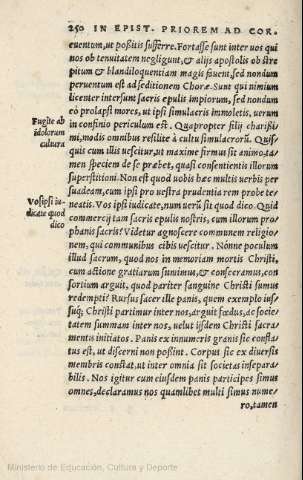 250 IN EPIST. PRIOREM AD COR.
euentum, ut poßitis sufferre. Fortasse sunt inter uos qui
nos ob tenuitatem negligunt, & alijs apostolis ob stre
pitum & blandiloquentiam magis fauent, sed nondum
peruentum est ad seditionem Choræ. Sunt qui nimium
licenter intersunt sacris epulis impiorum, sed nondum
eò prolapsi mores, ut ipsi simulacris immoletis, uerum
in confinio periculum est. Quapropter filij charißi
mi, modis omnibus resilite à cultu simulacrorū. Quis-
quis cum illis uescitur, ut maxime firmus sit animo, ta-
men speciem de se præbet, quasi consentientis illorum
superstitioni. Non est quod uobis hæc multis uerbis per
suadeam, cum ipsi pro uestra prudentia rem probe te-
neatis. Vos ipsi iudicate, num uerū sit quod dico. Quid
commercij tam sacris epulis nostris, cum illorum pro-
phanis sacris? Videtur agnoscere communem religio-
nem, qui communibus cibis uescitur. Nónne poculum
illud sacrum, quod nos in memoriam mortis Christi,
cum actione gratiarum sumimus, & consecramus, con-
sortium arguit, quod pariter sanguine Christi sumus
redempti? Rursus sacer ille panis, quem exemplo ius-
suq; Christi partimur inter nos, arguit fœdus, ac socie-
tatem summam inter nos, uelut ijsdem Christi sacra-
mentis initiatos. Panis ex innumeris granis sic confla-
tus est, ut discerni non poßint. Corpus sic ex diuersis
membris constat, ut inter omnia sit societas insepara-
bilis. Nos igitur cum eiusdem panis participes simus
omnes, declaramus nos quamlibet multi simus nume-
ro, tamen
Fugite ab
idolorum
cultura
Vos ipsi iu-
dicate quod
dico
Ministerio de Educación, Cultura y Deporte